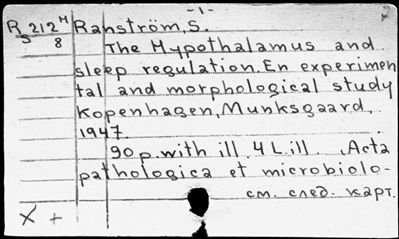 -1-
R 212 H Ranström, S.
5 8
The Hypothalamus and
sleep regulation. En experimen
tal and morphological study
Kopenhagen, Munksgaard,
1947.
90 p. with ill. 4 L. ill. Acta
pathologica et microbiolo-
см. след. карт.
X +